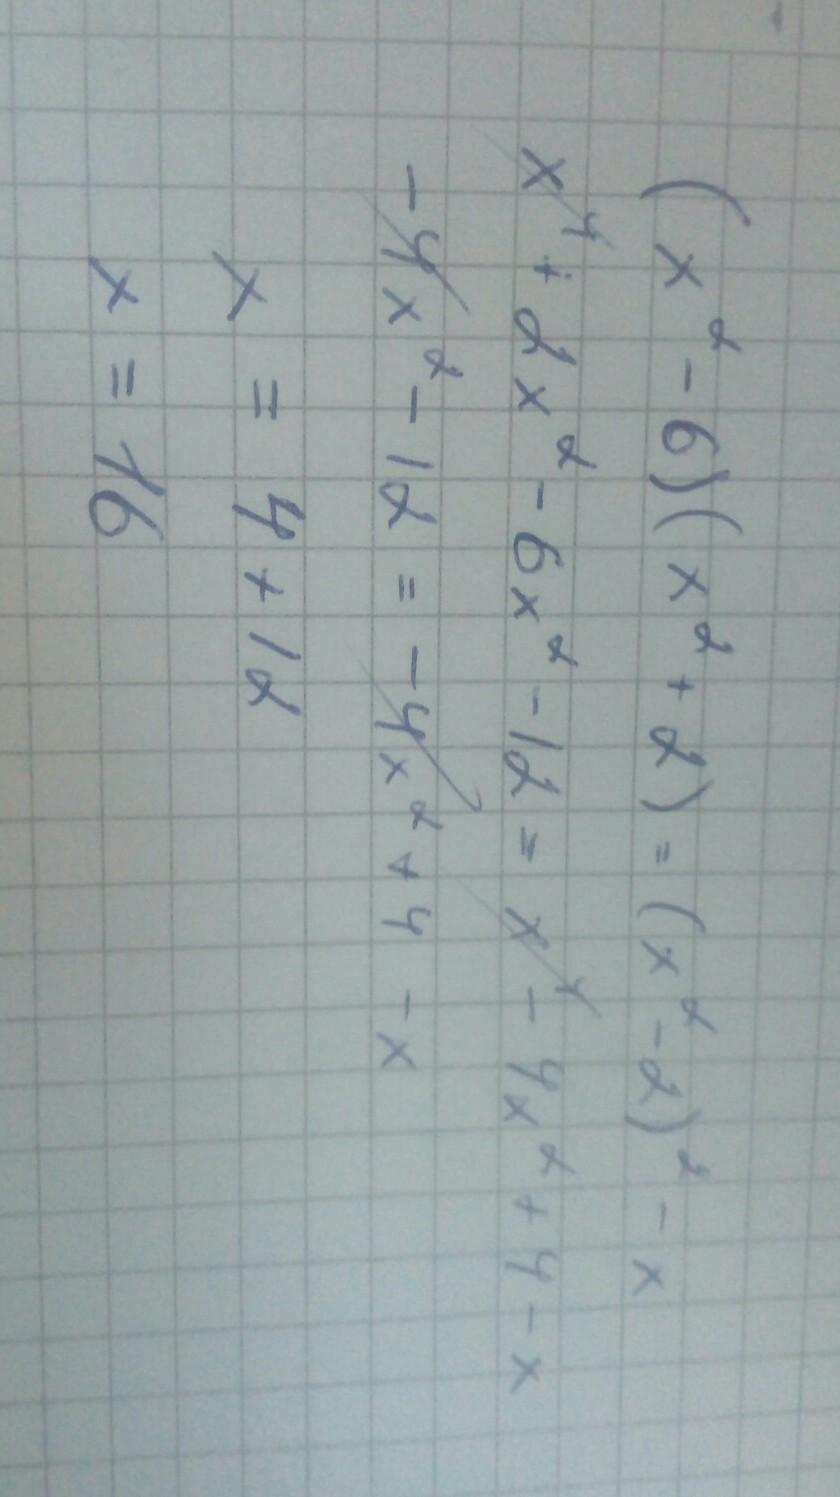 (x² - 6)(x² + 2) = (x² - 2)² - x
x⁴ + 2x² - 6x² - 12 = x⁴ - 4x² + 4 - x
- 4x² - 12 = - 4x² + 4 - x
x = 4 + 12
x = 16